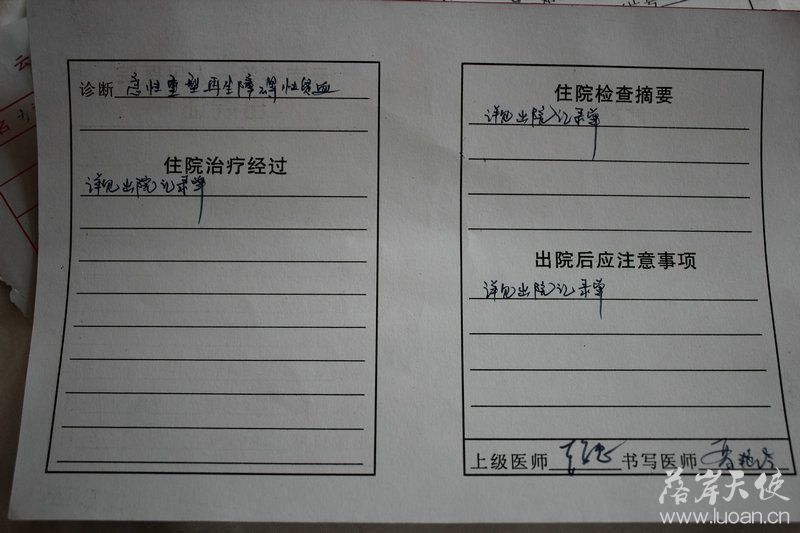 诊断 急性重型再生障碍性贫血
住院治疗经过
详见出院记录单
住院检查摘要
详见出院记录单
出院后应注意事项
详见出院记录单
上级医师 书写医师
落岸天使
www.luoan.cn